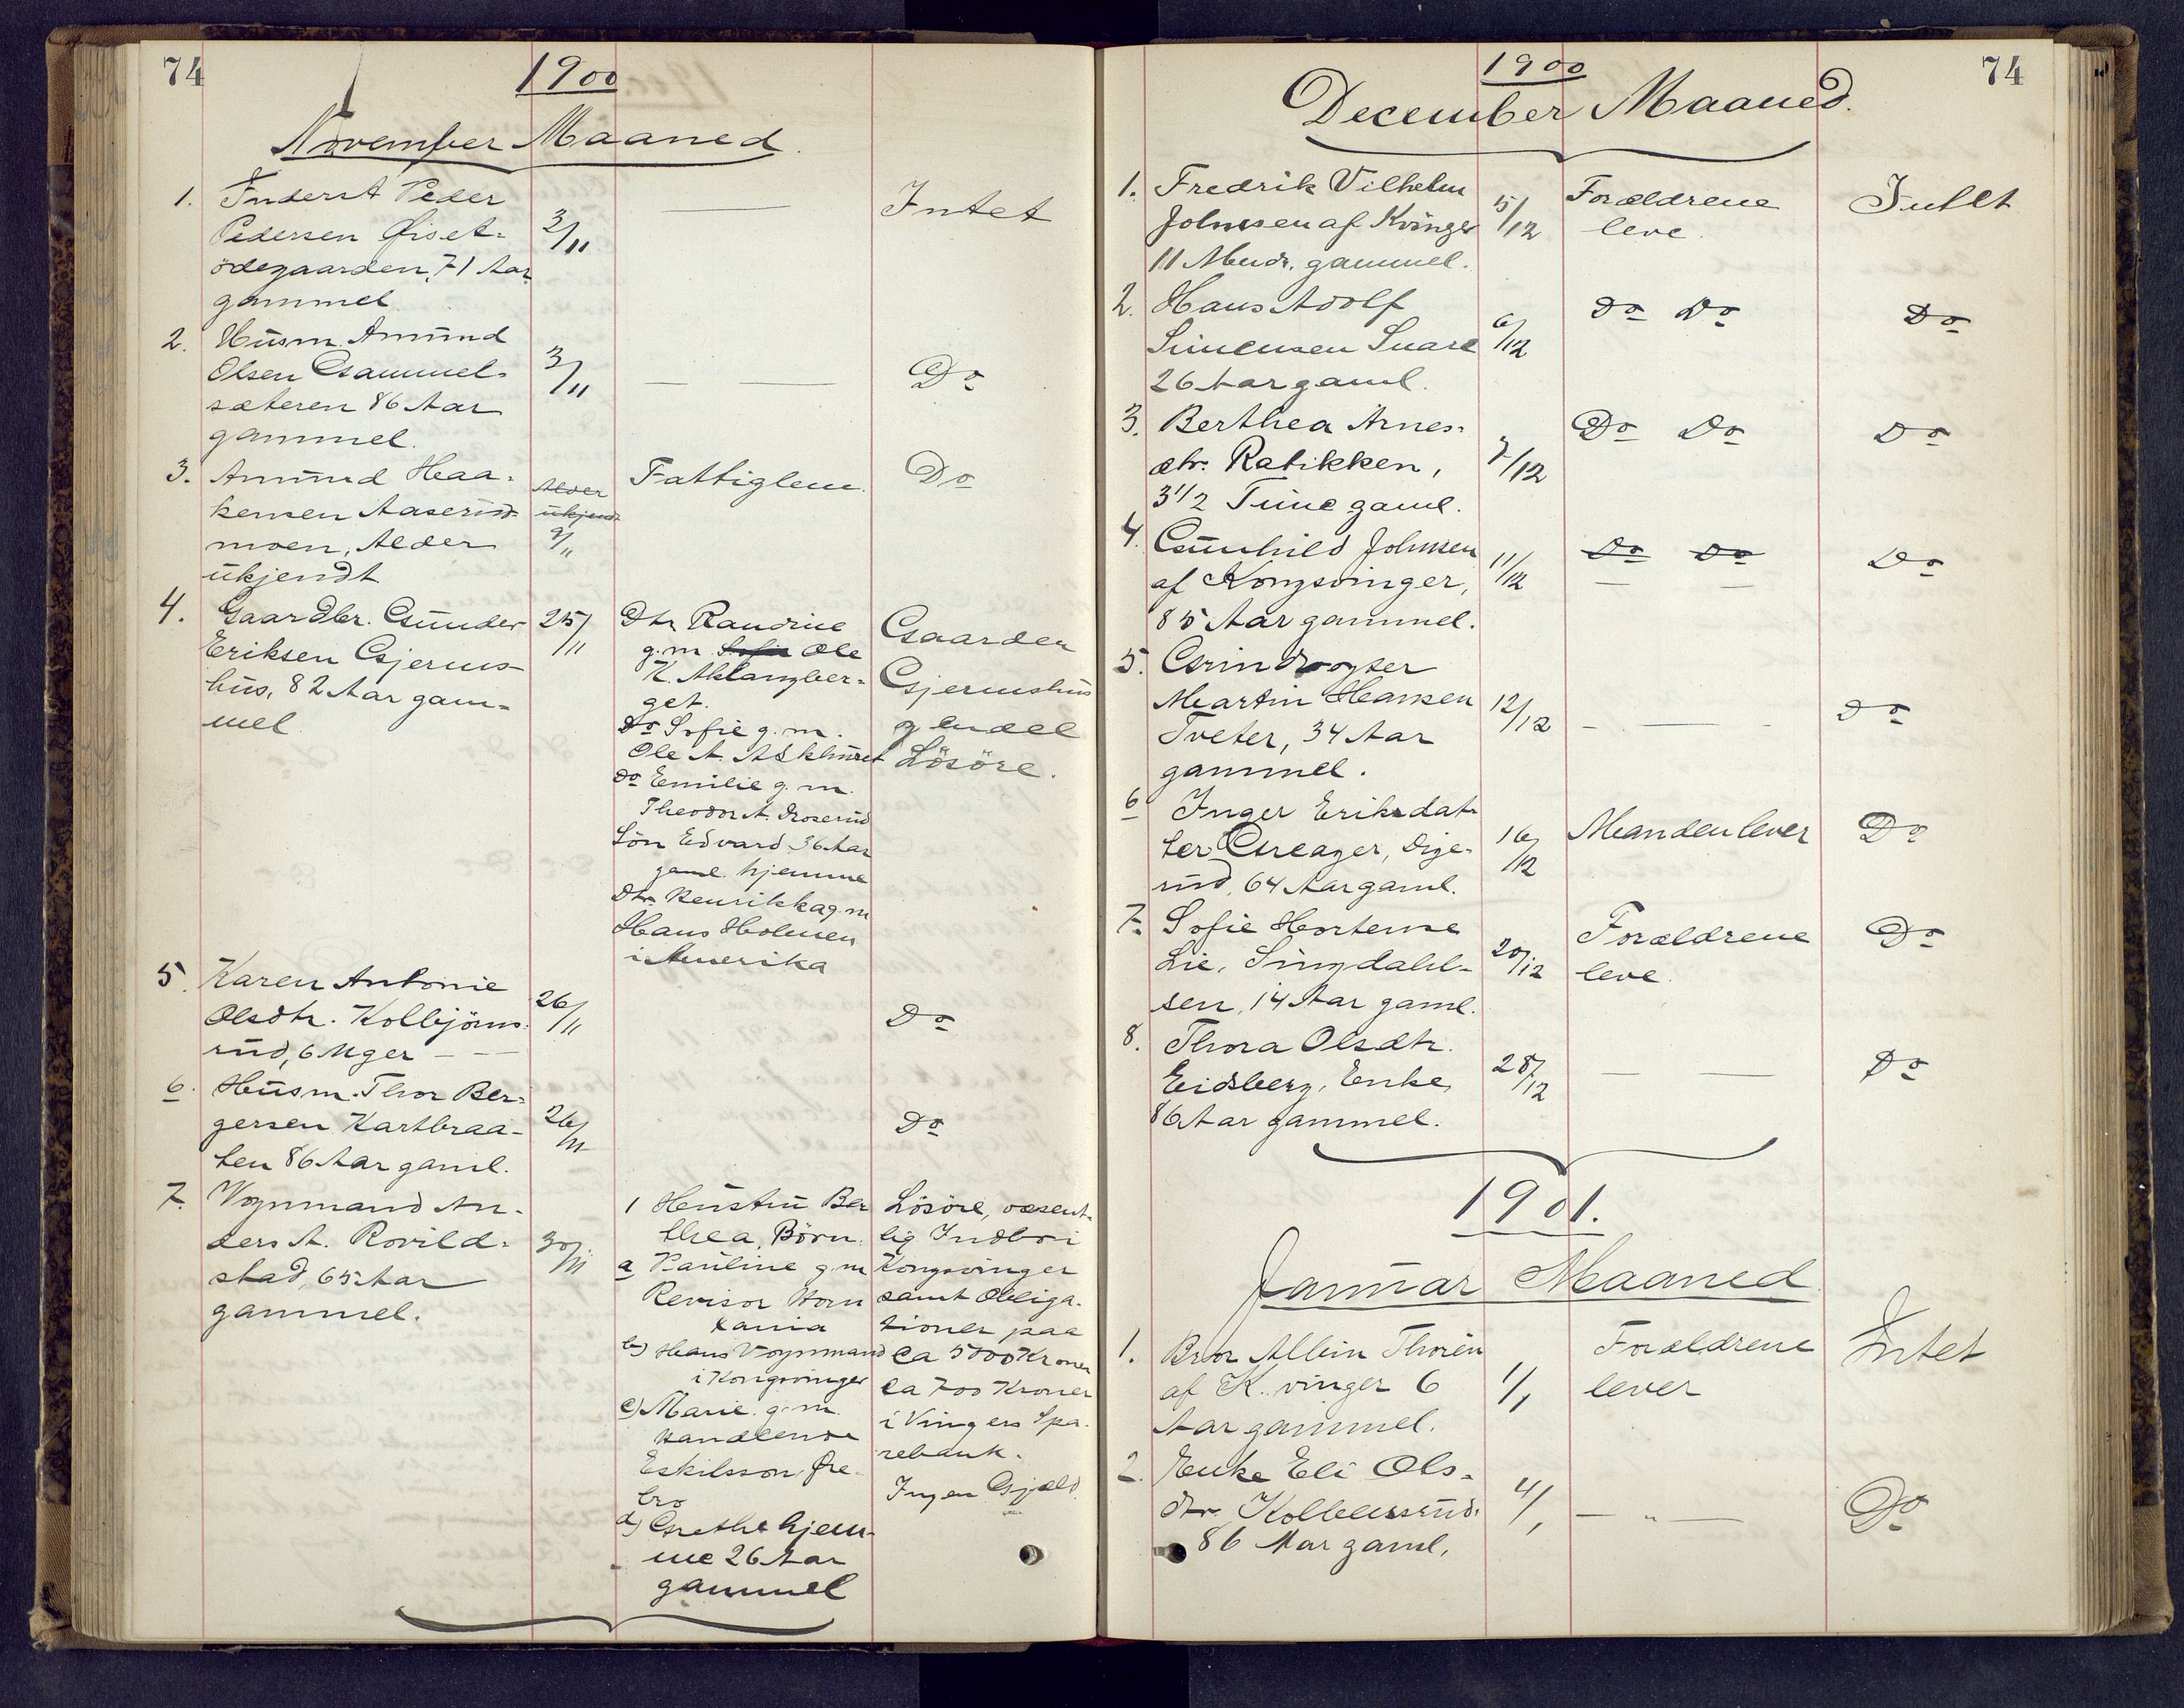 74
1900
November Maaned.
1. Inderst Peder
Pedersen Öiset-
ödegaarden, 71 Aar
gammel
3/11
Intet
2. Husm. Amund
Olsen Gammel-
sæteren 86 Aar
gammel.
3/11
Do
3. Amund Haa-
kensen Aaserud-
moen, Alder
ukjendt
Alder
ukjendt
9/11
Fattiglem.
Do
4. Gaardbr. Gunder
Eriksen Gjerms-
hus, 82 Aar gam-
mel
25/11
Dtr Randine
g.m. Sofie Ole
K. Aklangber-
get.
Do Sofie g.m.
Ole A. Askhuset
Do Emilie g.m.
Theodor A. Roserud
Sön Edvard 36 Aar
gaml. hjemme
Dtr. Henrikka g.m
Hans Holmen
i Amerika
Gaarden
Gjermshus
g endel
Lösöre.
5. Karen Antonie
Olsdtr. Kolbjörns-
rud, 6 Uger
26/11
Do
6. Husm. Thor Ber-
gersen Kartbraa-
ten 86 Aar gaml.
26/11
Do
7. Vognmand An-
ders A. Rovild-
stad, 65 Aar
gammel.
30/11
1 Hustru Ber
thea, Börn:
a Pauline g.m
Revisor Horn
Xania
b) Hans Vognmand
i Kongsvinger
c) Marie g.m.
Handlende
Eskilsson Öre-
bro
d) Grethe hjem-
me 26 Aar
gammel
Lösöre, væsent-
lig Indbo i
Kongsvinger
samt Obliga-
tioner paa
Ca 5000 Kroner
Ca 700 Kroner
i Vingers Spa-
rebank.
Ingen Gjæld
74
1900
December Maaned.
1. Fredrik Vilhelm
Johnsen af Kvinger
11 Mndr. gammel.
5/12
Forældrene
leve.
Intet
2. Hans Adolf
Simensen Snare
26 Aar gaml.
6/12
Do Do
Do
3. Berthea Arnes-
dtr. Ratikken,
3 1/2 Time gaml.
7/12
Do Do
Do
4. Gunhild Johnsen
af Kongsvinger,
85 Aar gammel.
11/12
Do Do
Do
5. Grindvogter
Martin Hansen
Tveter, 34 Aar
gammel.
12/12
Do
6 Inger Eriksdat-
ter Greager, Dige-
rud, 64 Aar gaml.
16/12
Manden lever
Do
7. Sofie Hortense
Lie, Singdahl-
sen, 14 Aar gaml.
20/12
Forældrene
leve.
Do
8. Thora Olsdtr.
Eidsberg, Enke,
86 Aar gammel.
28/12
Do
1901.
Januar Maaned
1. Bror Albin Thorén
af K.vinger 6
Aar gammel.
1/1
Forældrene
lever
Intet
2. Enke Eli Ols-
dtr. Kolbensrud.
86 Aar gaml.
4/1
— " —
Do